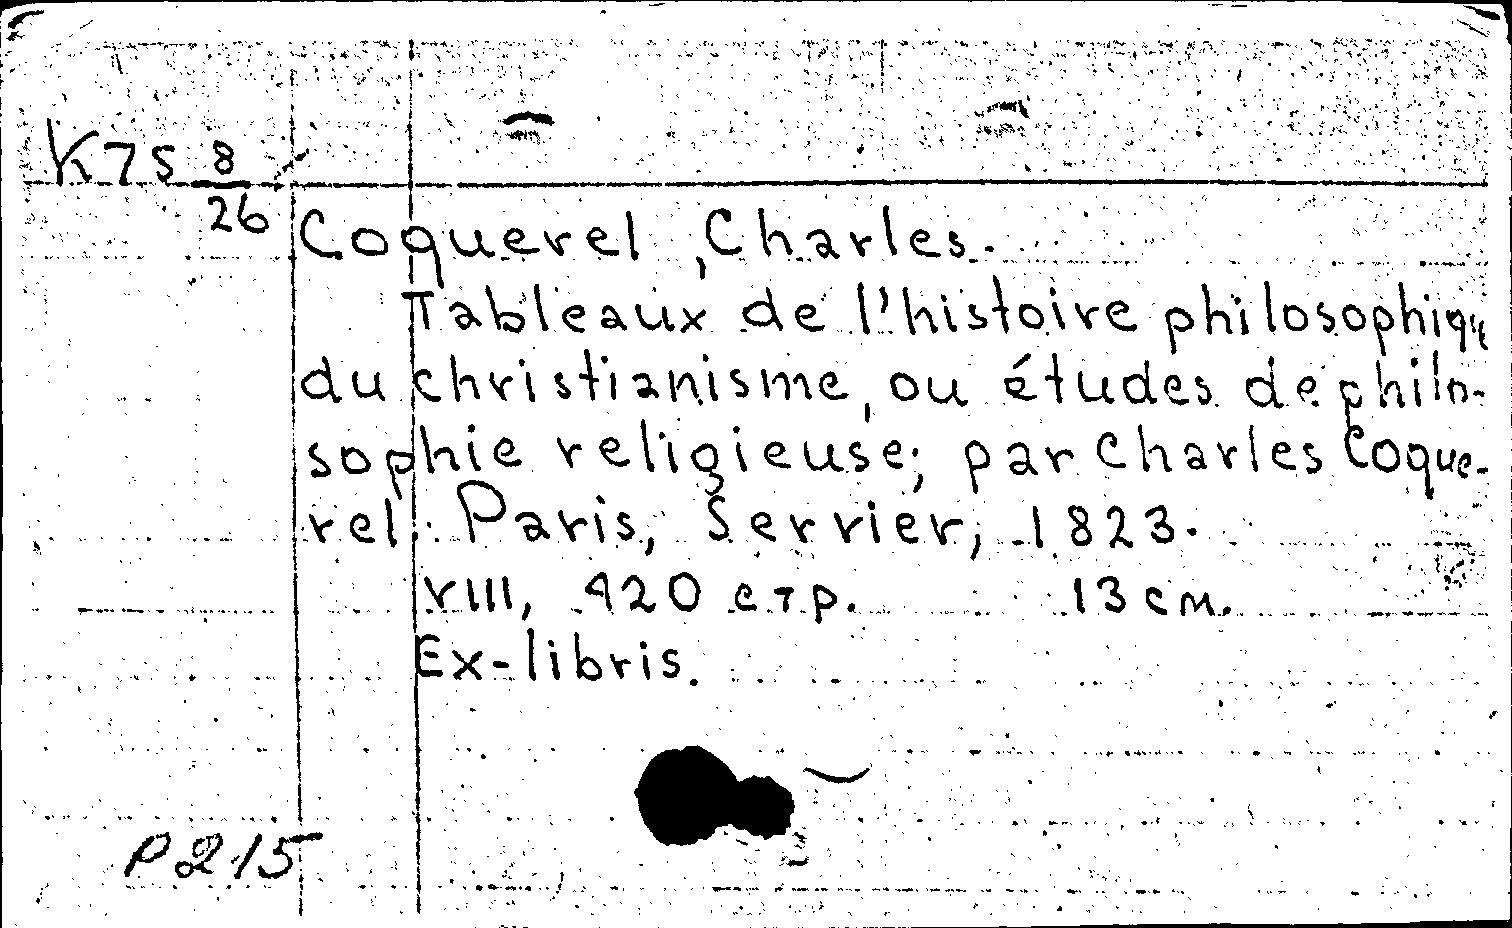 K75 8/26
Coquerel, Charles.
Tableaux de l'histoire philosophiqu
du christianisme, ou études de philo-
sophie religieuse; par Charles Coque-
rel. Paris, Servier, 1823.
VIII, 420 стр. 13 см.
Ex-libris.
P215